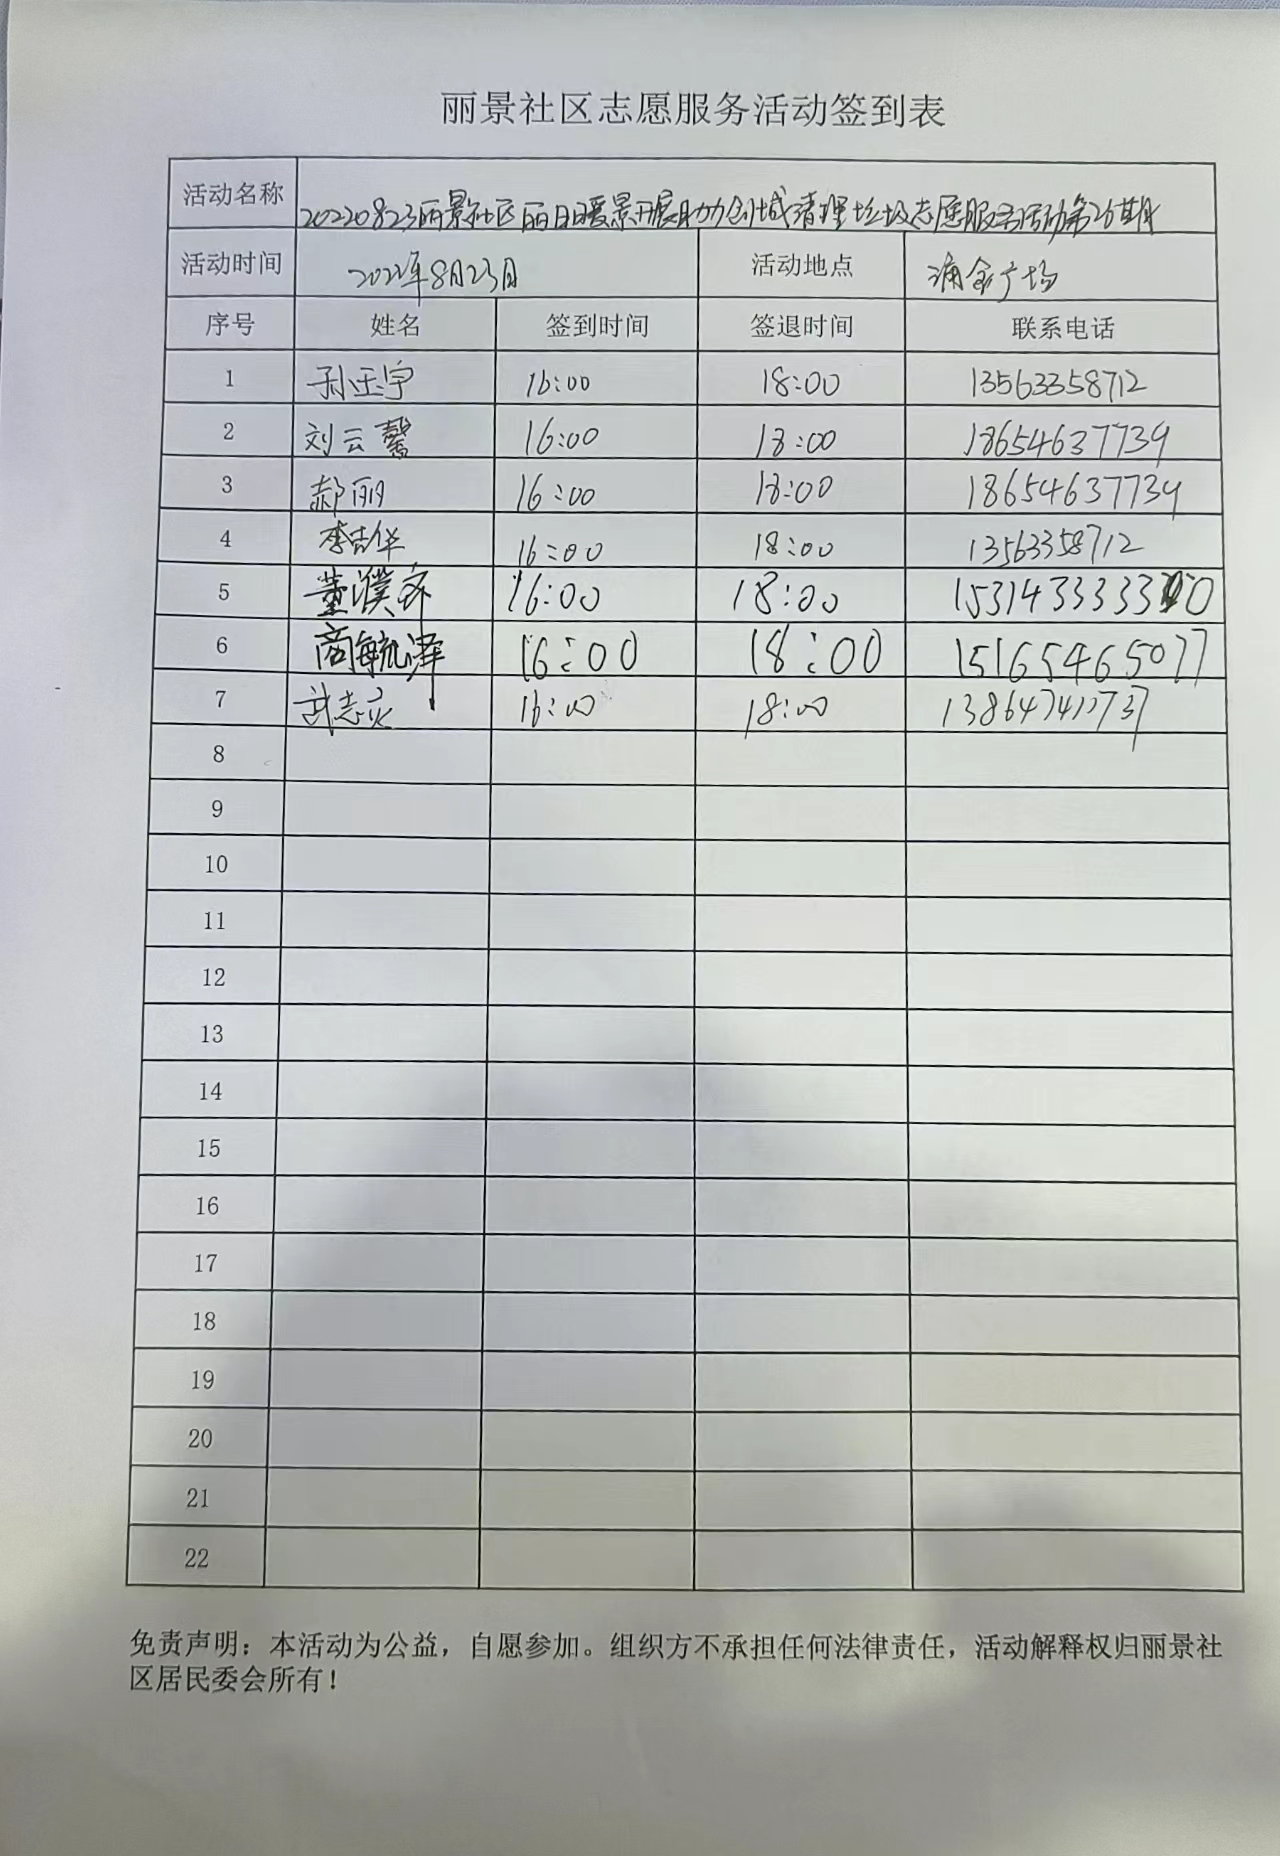 丽景社区志愿服务活动签到表
活动名称 20220823丽景社区丽日暖景开展助力创城清理垃圾志愿服务活动第26期
活动时间 2022年8月23日 活动地点 涌金广场
序号 姓名 签到时间 签退时间 联系电话
1 孙玉宇 16:00 18:00 13563358712
2 刘云馨 16:00 18:00 18654637739
3 郝丽 16:00 18:00 18654637739
4 李吉华 16:00 18:00 13563358712
5 董濮齐 16:00 18:00
6 商毓泽 16:00 18:00 15165465077
7 武志 16:00 18:00
8
9
10
11
12
13
14
15
16
17
18
19
20
21
22
免责声明：本活动为公益，自愿参加。组织方不承担任何法律责任，活动解释权归丽景社
区居民委会所有！